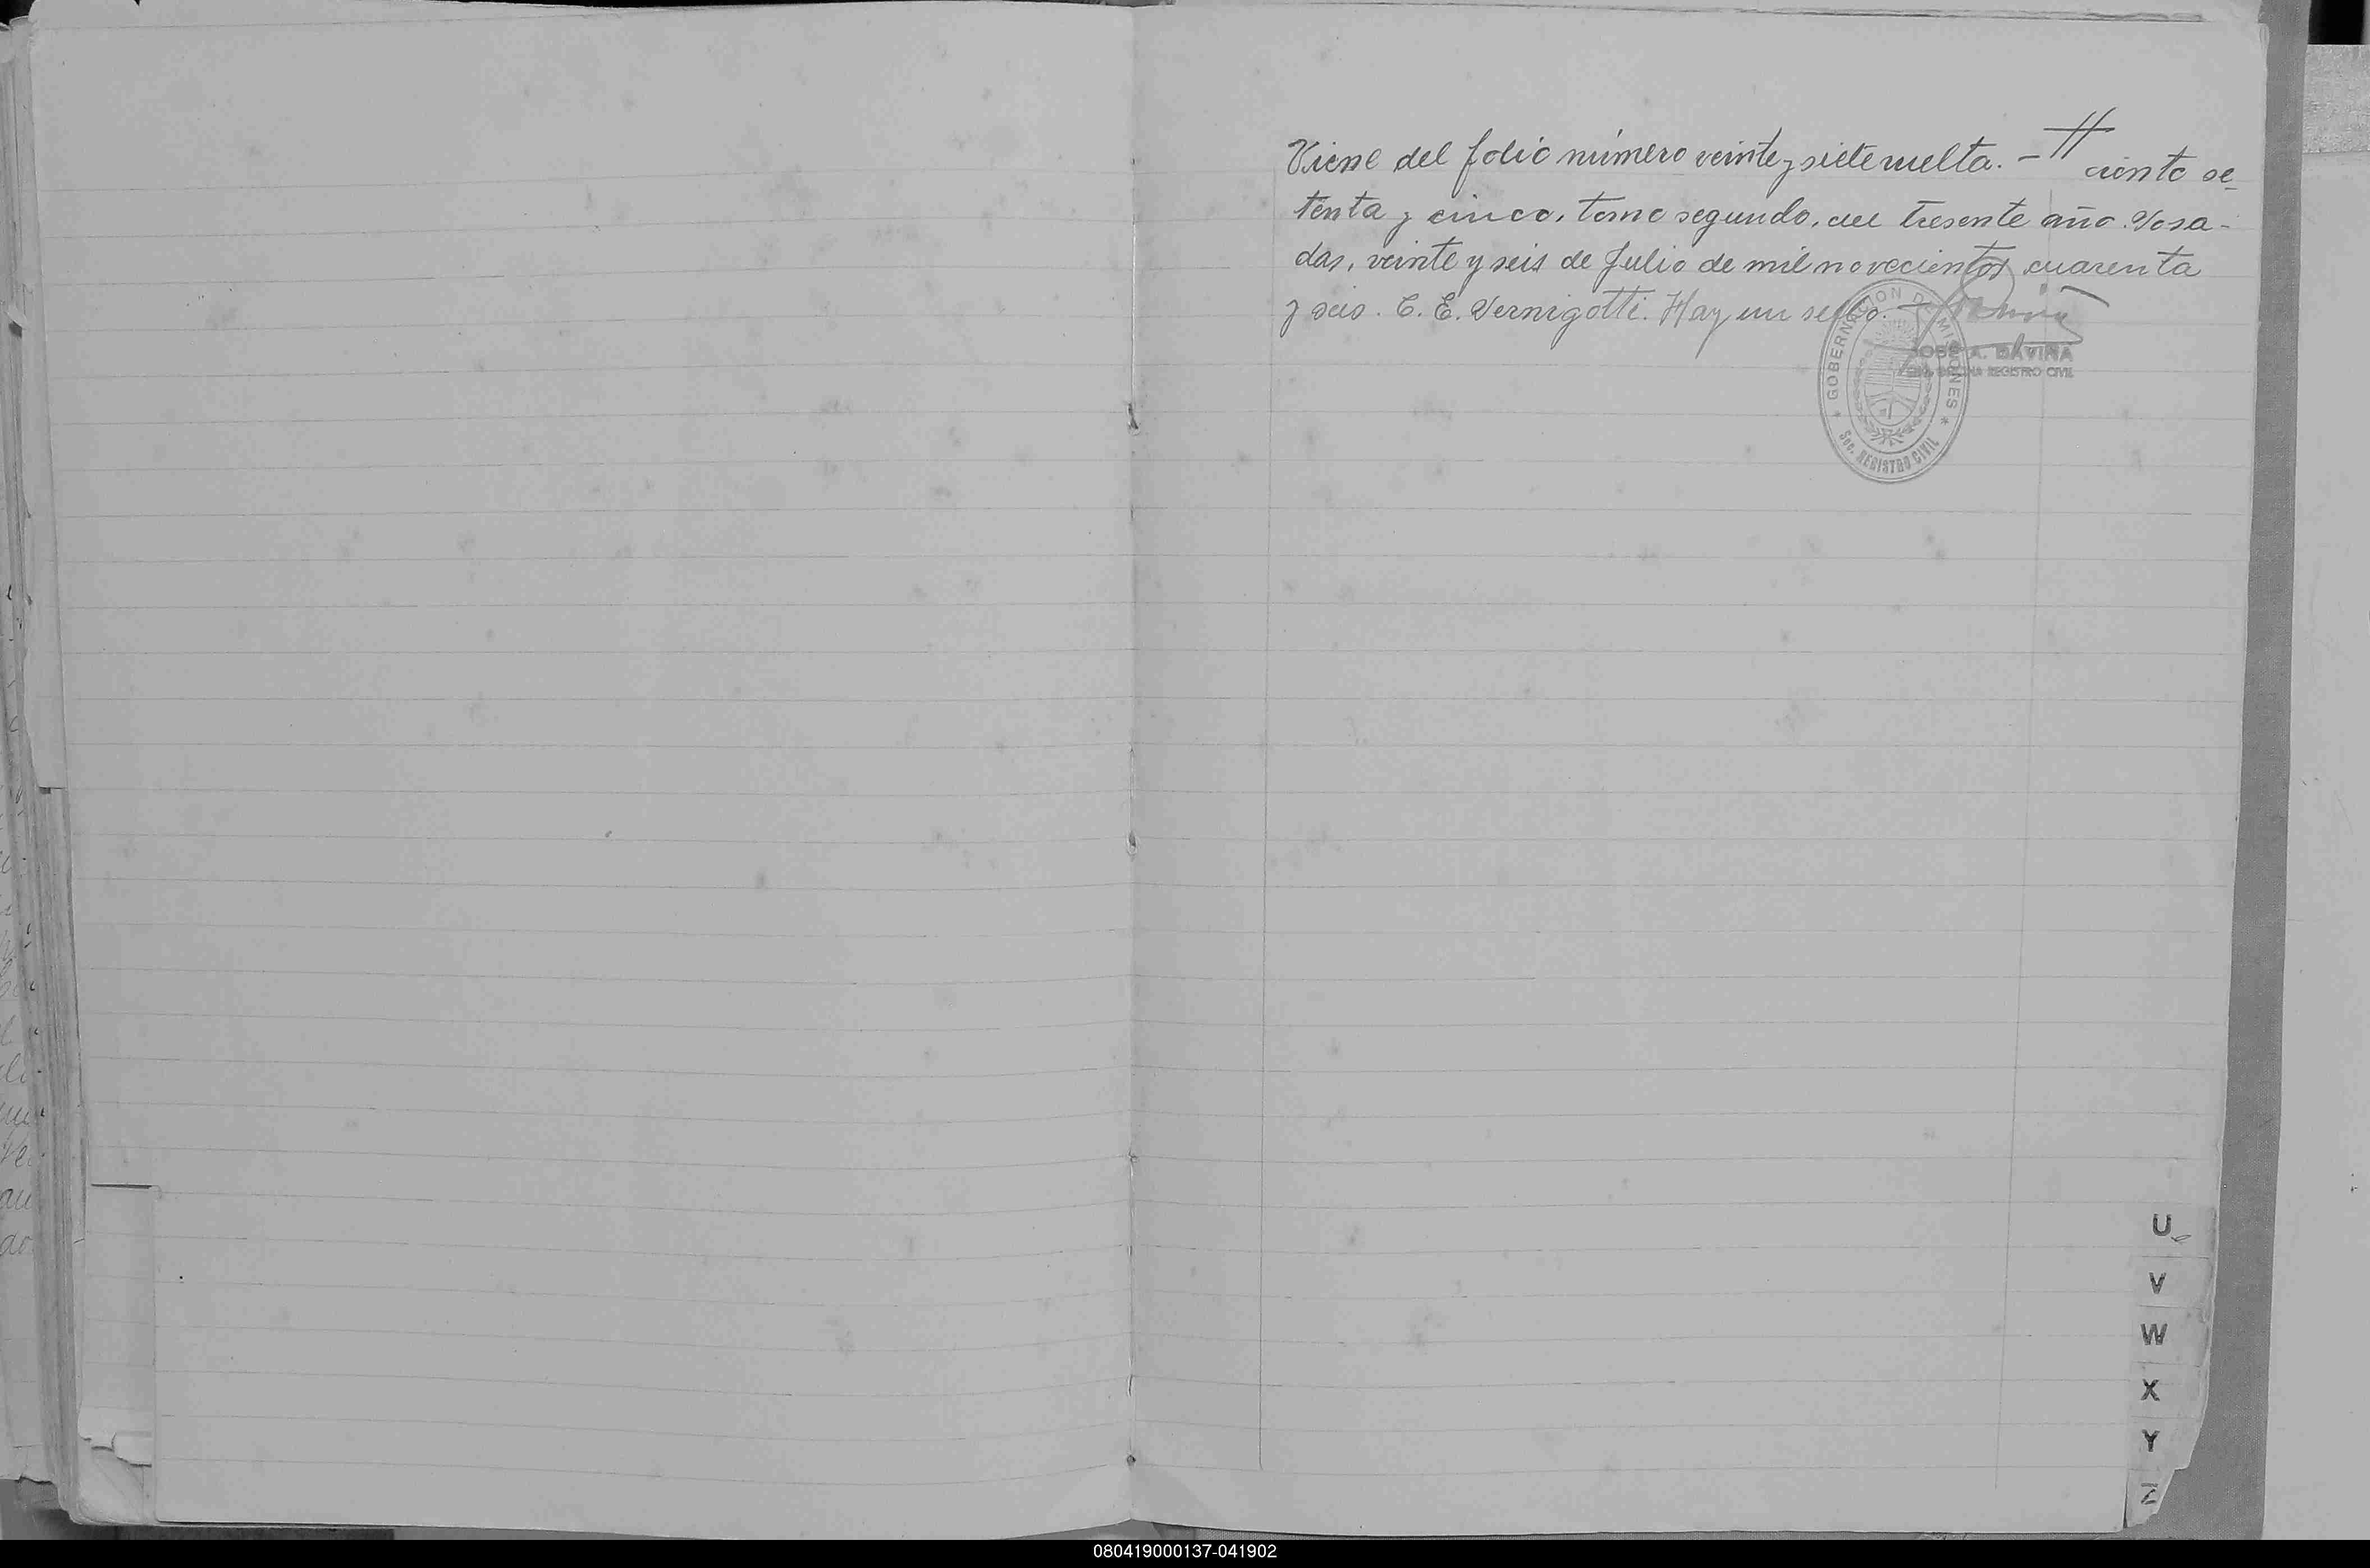 Viene del folio número veinte y siete vuelta. - # ciento se-
tenta y cinco, tomo segundo, del presente año. Posa-
das, veinte y seis de Julio de mil novecientos cuarenta
y seis. C. E. Vernigotti. Hay un sello.
JOSE A. DAVIÑA
REGISTRO CIVIL
GOBERNACION DE MISIONES
Sec. REGISTRO CIVIL
U
V
W
X
Y
Z
080419000137-041902